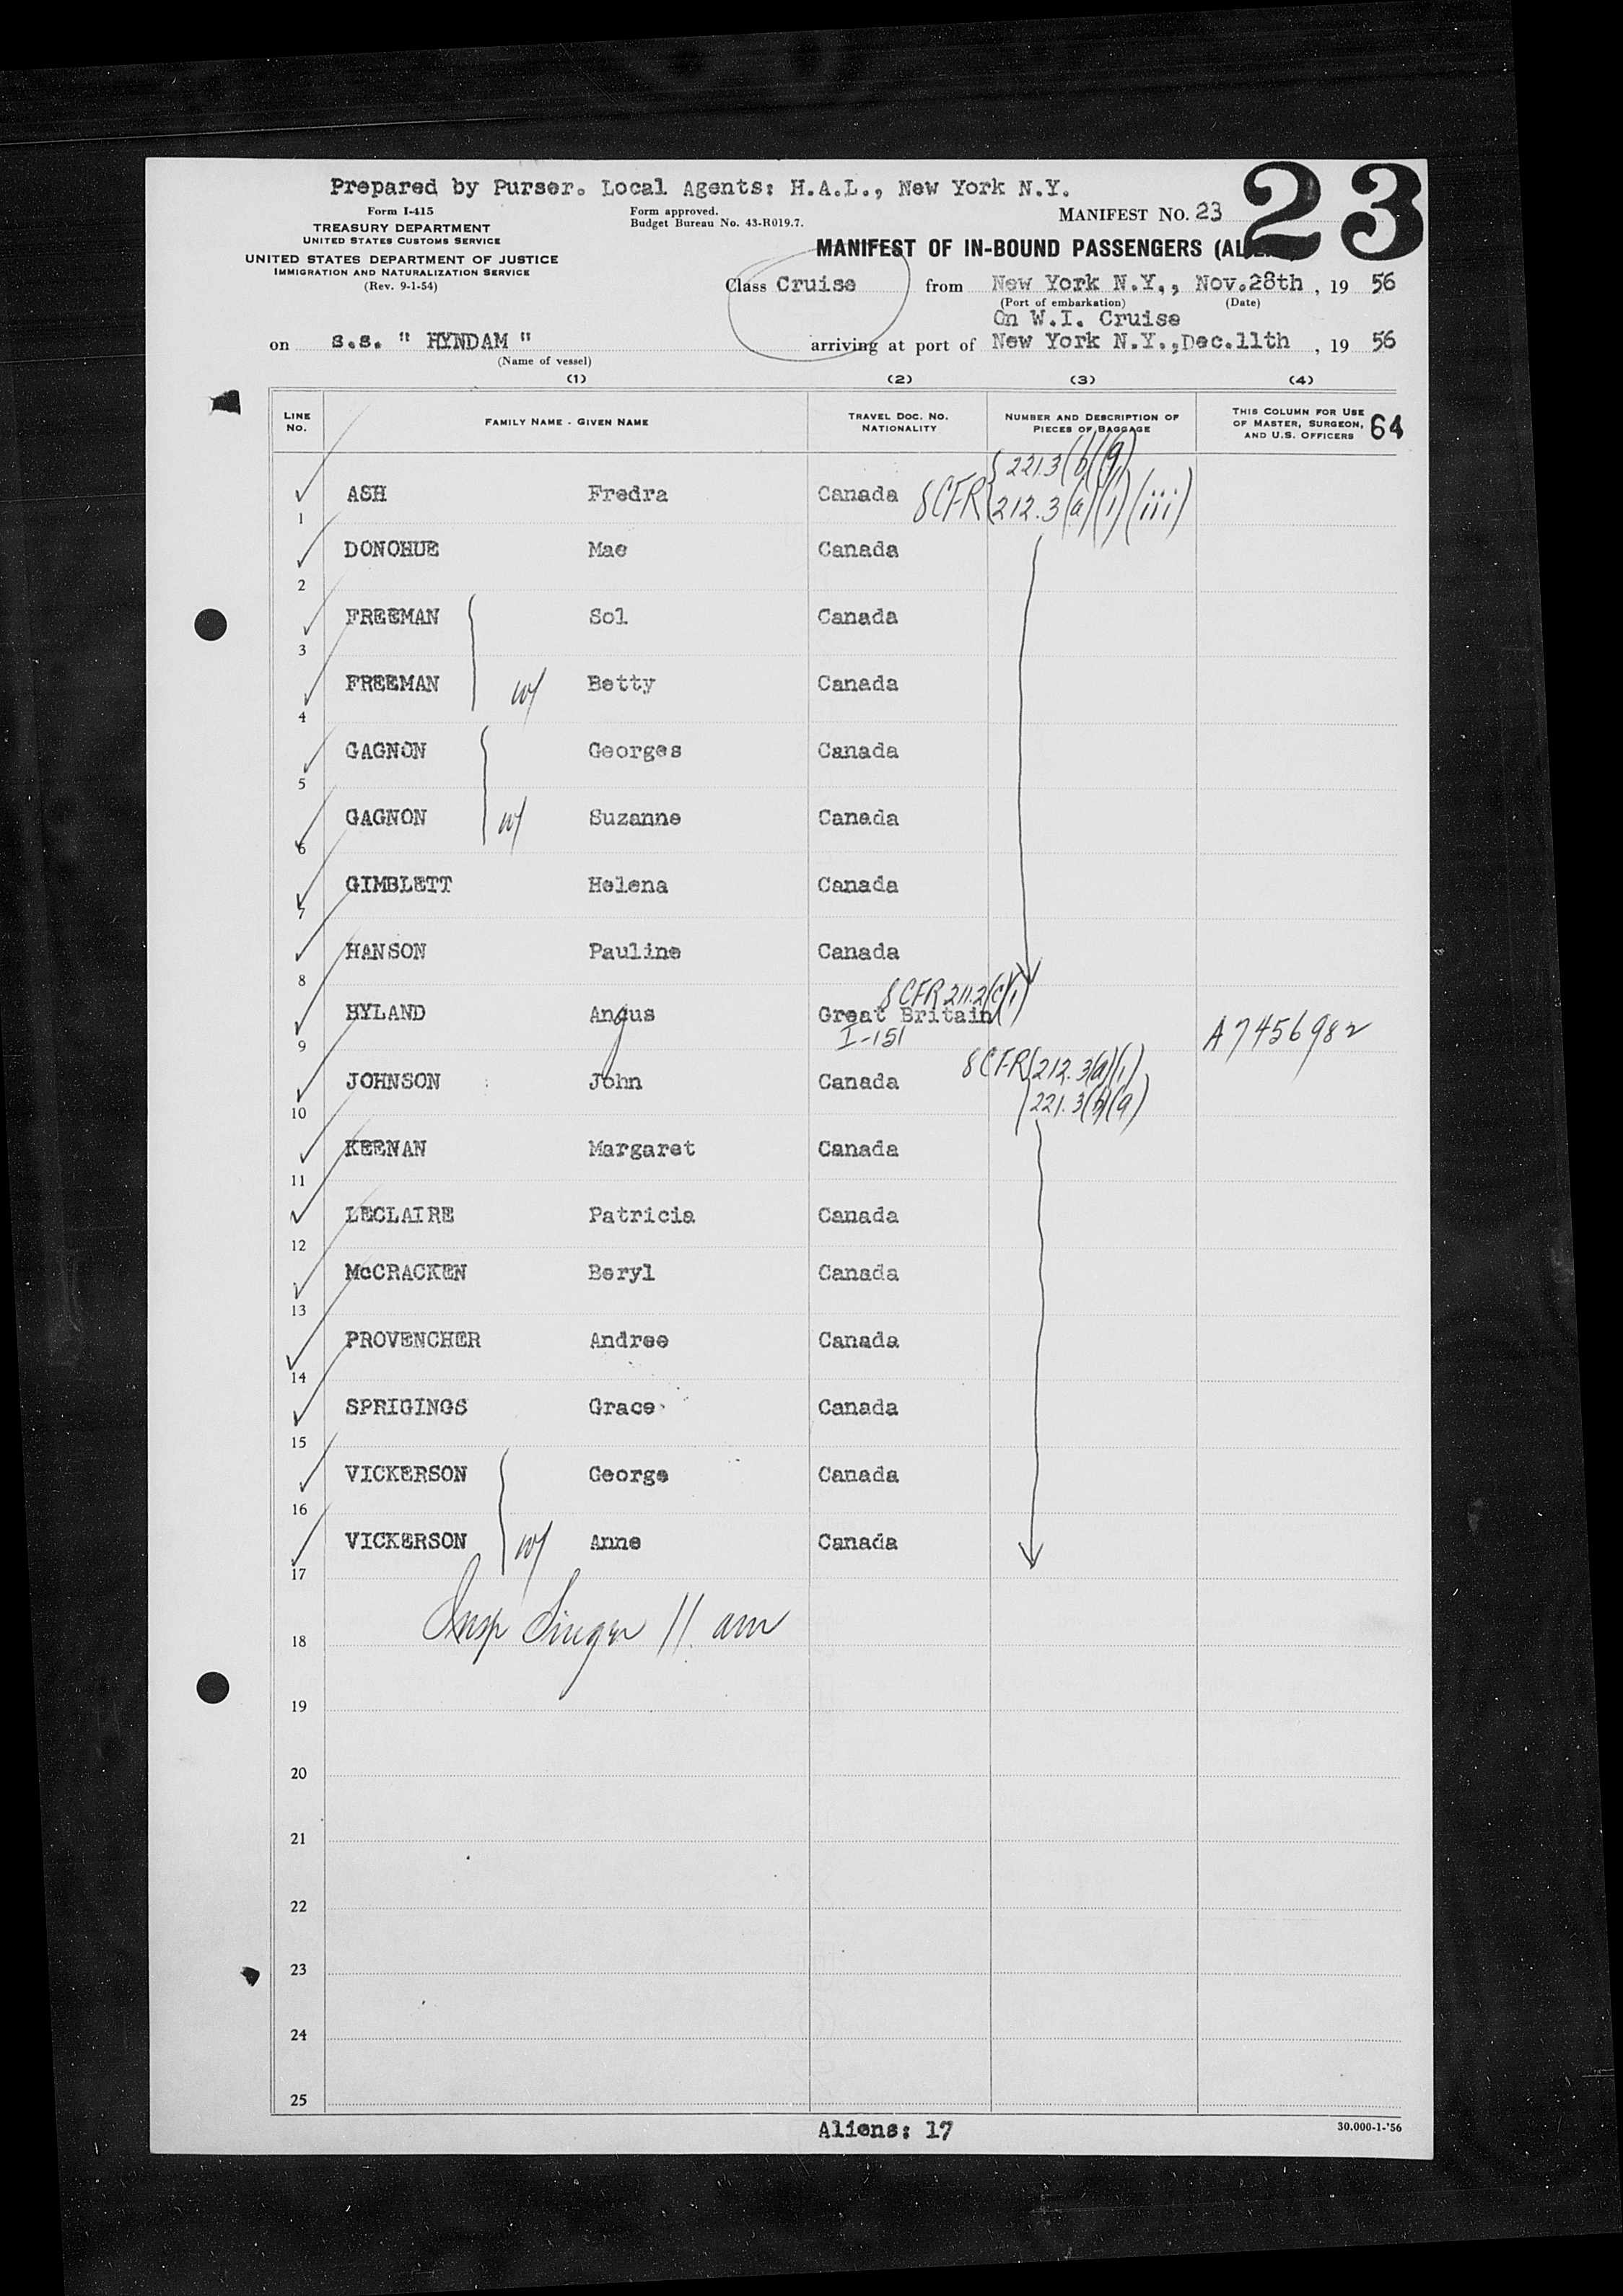 Prepared by Purser. Local Agents: H.A.L., New York N.Y.
23
Form I-415
TREASURY DEPARTMENT
UNITED STATES CUSTOMS SERVICE
UNITED STATES DEPARTMENT OF JUSTICE
IMMIGRATION AND NATURALIZATION SERVICE
(Rev. 9-1-54)
Form approved.
Budget Bureau No. 43-R019.7.
MANIFEST NO. 23
MANIFEST OF IN-BOUND PASSENGERS
Class Cruise from New York N.Y., Nov.28th, 19 56
(Port of embarkation) (Date)
On W.I. Cruise
on s.s. " RYNDAM " arriving at port of New York N.Y., Dec.11th, 19 56
(Name of vessel)
(1) (2) (3) (4)
LINE NO. FAMILY NAME - GIVEN NAME TRAVEL DOC. NO. NATIONALITY NUMBER AND DESCRIPTION OF PIECES OF BAGGAGE THIS COLUMN FOR USE OF MASTER, SURGEON, AND U.S. OFFICERS 64
221.3(b)(9)
1 ASH Fredra Canada 8CFR 212.3(a)(1)(iii)
2 DONOHUE Mae Canada
3 FREEMAN Sol Canada
4 FREEMAN w/ Betty Canada
5 GAGNON Georges Canada
6 GAGNON w/ Suzanne Canada
7 GIMBLETT Helena Canada
8 HANSON Pauline Canada
8 CFR 211.2(c)(1)
9 HYLAND Angus Great Britain A7456982
I-151
10 JOHNSON John Canada 8CFR 212.3(a)(1)
221.3(b)(9)
11 KEENAN Margaret Canada
12 LECLAIRE Patricia Canada
13 McCRACKEN Beryl Canada
14 PROVENCHER Andree Canada
15 SPRIGINGS Grace Canada
16 VICKERSON George Canada
17 VICKERSON w/ Anne Canada
18 Insp Singer 11 am
19
20
21
22
23
24
25
Aliens: 17
30.000-1-'56